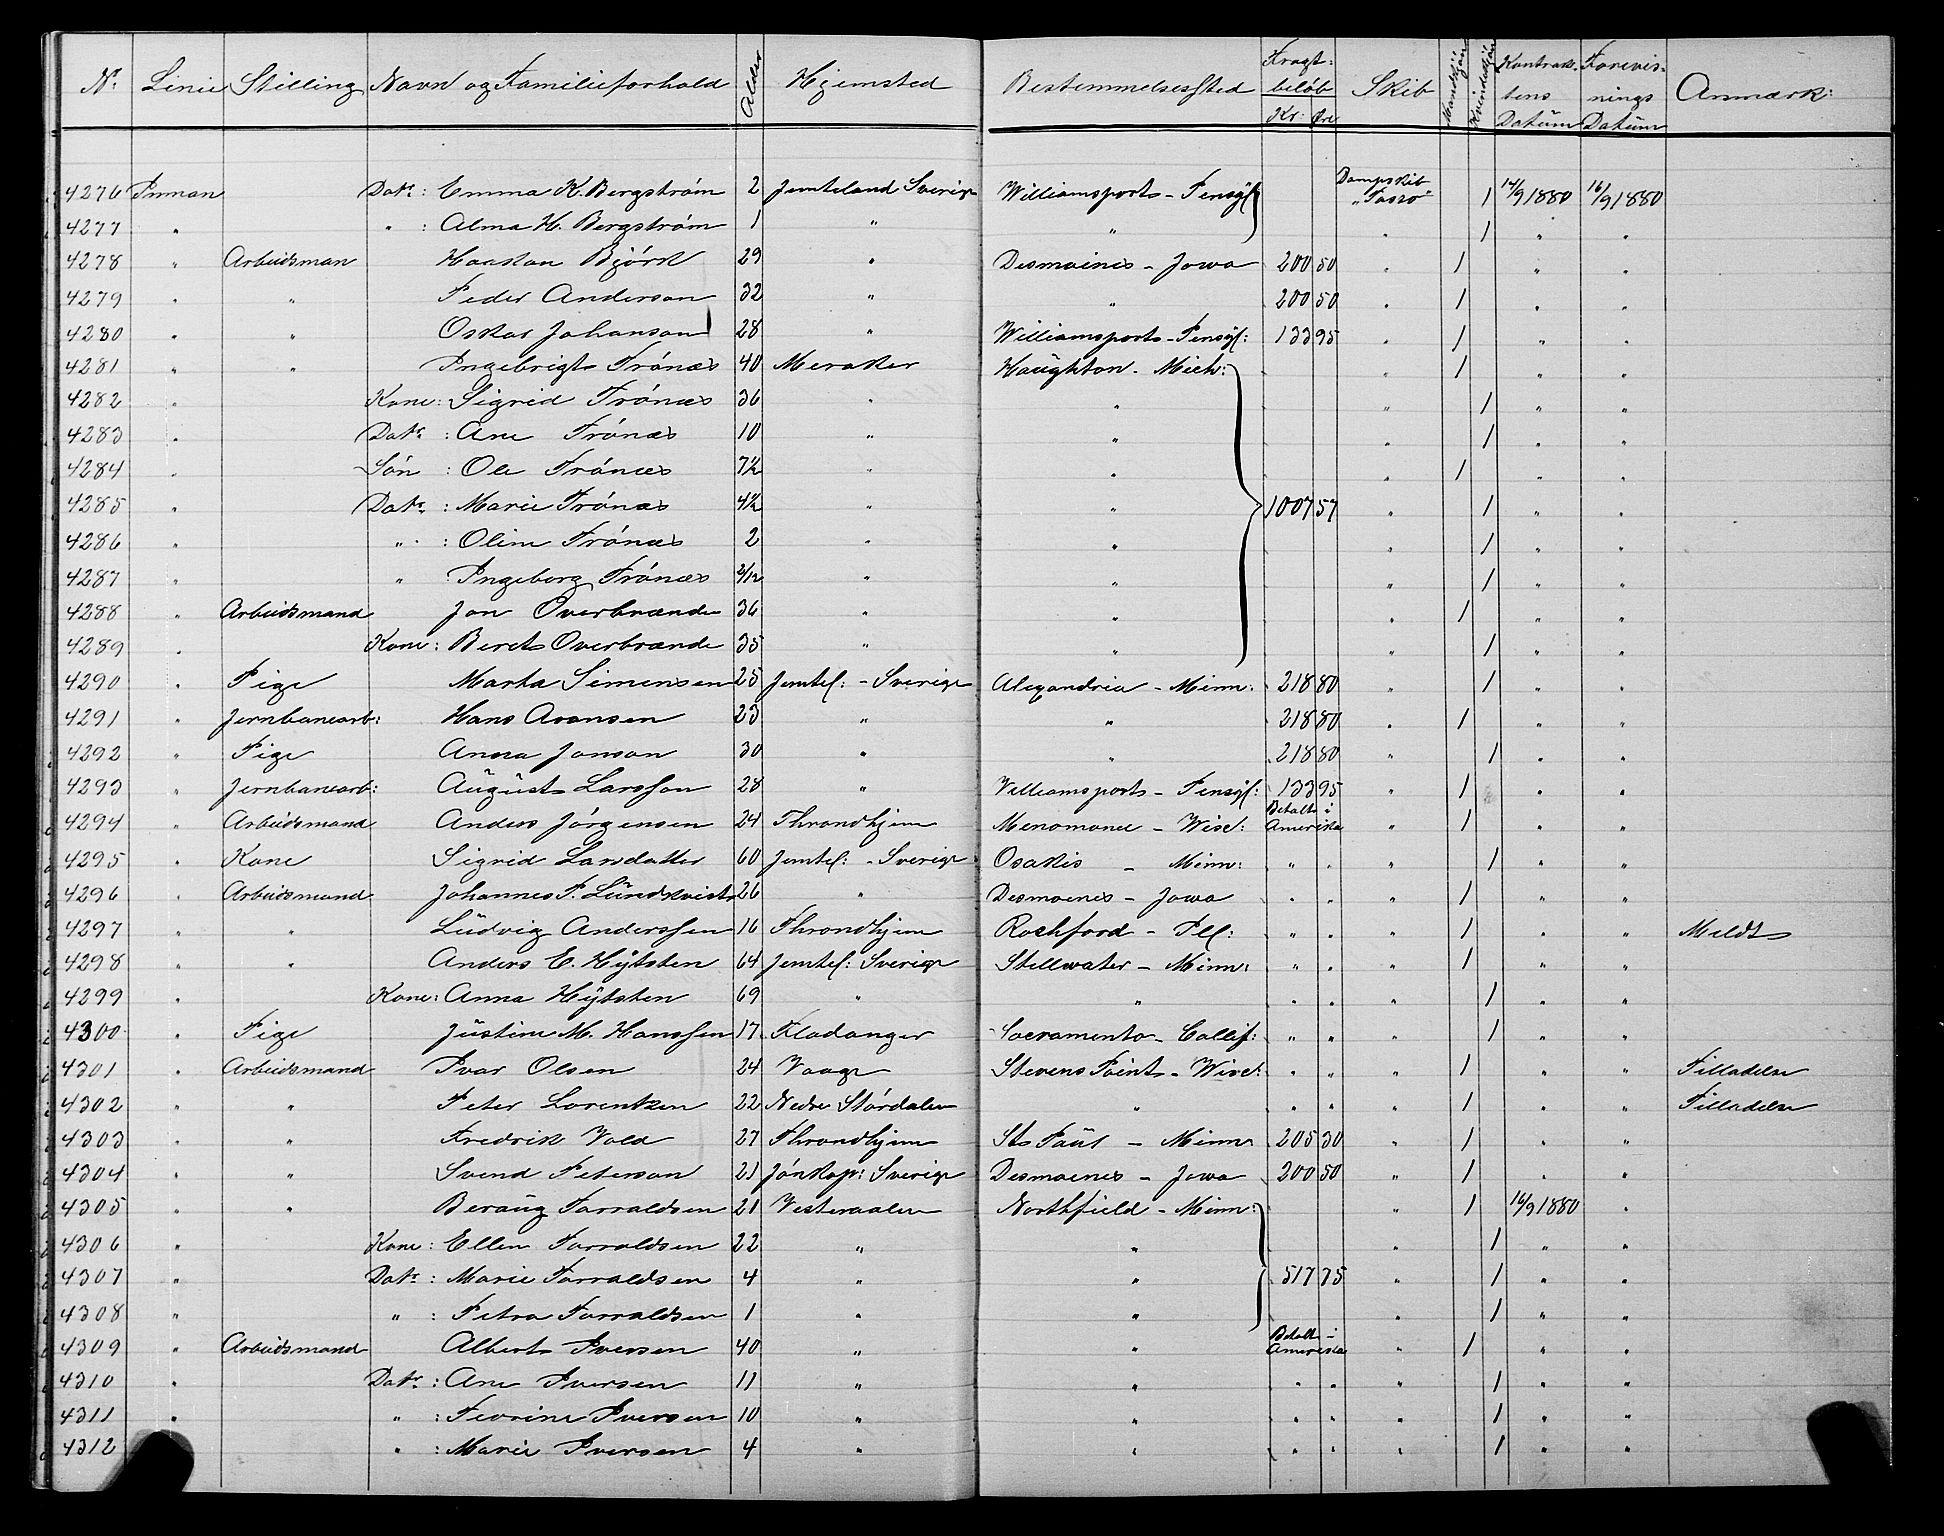 N: Linie Stilling Navn og Familieforhold Alder Hjemsted Bestemmelsessted Fragt: beløb Kr: Øre Skib Mandkjøn Kvindekjøn Kontrak: tens Datum Forevis: nings Datum Anmærk:
4276 Inman Datr: Emma K. Bergström 2 Jemteland Sverige Williamsports - Pensyl: Dampskib "Tasso" 1 14/9 1880 16/9 1880
4277 " " : Alma H. Bergström 1 " " " 1 " "
4278 " Arbeidsman Haakan Björk 29 " Desmoines - Jowa 200 50 " 1 " "
4279 " " Peder Anderson 32 " " 200 50 " 1 " "
4280 " " Oskar Johanson 28 " Williamsports - Pensyl: 133 95 " 1 " "
4281 " " Ingebrigt Trönæs 40 Meraker Houghton - Mich: " 1 " "
4282 " Kone: Sigrid Trönæs 36 " " " 1 " "
4283 " Datr: Ane Trönæs 10 " " " 1 " "
4284 " Sön : Ole Trönæs 7½ " " " 1 " "
4285 " Datr: Marie Trönæs 4½ " " 1007 57 " 1 " "
4286 " " : Oline Trönæs 2 " " " 1 " "
4287 " " : Ingeborg Trönæs 2/12 " " " 1 " "
4288 " Arbeidsmand Jon Overbrænde 36 " " " 1 " "
4289 " Kone: Beret Overbrænde 35 " " " 1 " "
4290 " Pige Marta Simensen 25 Jemtl: - Sverige Alexandria - Minn: 218 80 " 1 " "
4291 " Jernbanearb: Hans Aronsen 23 " " 218 80 " 1 " "
4292 " Pige Anna Jonson 30 " " 218 80 " 1 " "
4293 " Jernbanearb: August Larsson 28 " Williamsports - Pensyl: 133 95 " 1 " "
4294 " Arbeidsmand Anders Jörgensen 24 Throndhjem Menomonee - Wisc: Betalt i Amerika " 1 " "
4295 " Kone Sigrid Larsdatter 60 Jemtl: - Sverige Osakis - Minn: " " " 1 " "
4296 " Arbeidsmand Johannes P. Lundkvist 26 " Desmoenes - Jowa " " " 1 " "
4297 " " Ludvig Anderssen 16 Throndhjem Rochford - Ill: " " " 1 " " Meldt
4298 " " Anders E. Hytsten 64 Jemtl: Sverige Stillwater - Minn: " " " 1 " "
4299 " Kone: Anna Hytsten 69 " " " " " 1 " "
4300 " Pige Justine M. Hanssen 17 Fladanger Sacramento - Callif: " " " 1 " "
4301 " Arbeidsmand Ivar Olsen 24 Vaage Stevens Point - Wisc: " " " 1 " " Tilladelse
4302 " " Peter Lorentzen 22 Nedre Stördalen " " " " 1 " " Tilladelse
4303 " " Fredrik Vold 27 Throndhjem St Paul - Minn 205 30 " 1 " "
4304 " " Svend Peterson 21 Jönkop: Sverige Desmoenes - Jowa 200 50 " 1 " "
4305 " " Beraug Torraldsen 21 Vesteraalen Northfield - Minn: " 1 16/9 1880 "
4306 " Kone: Ellen Torraldsen 22 " " " 1 " "
4307 " Datr: Marie Torraldsen 4 " " 517 75 " 1 " "
4308 " " : Petra Torraldsen 1 " " " 1 " "
4309 " Arbeidsmand Albert Iversen 40 " " Betalt i Amerika " 1 " "
4310 " Datr: Ane Iversen 11 " " " " " 1 " "
4311 " " : Fevrine Iversen 10 " " " " " 1 " "
4312 " : Marie Iversen 4 " " " " " 1 " "